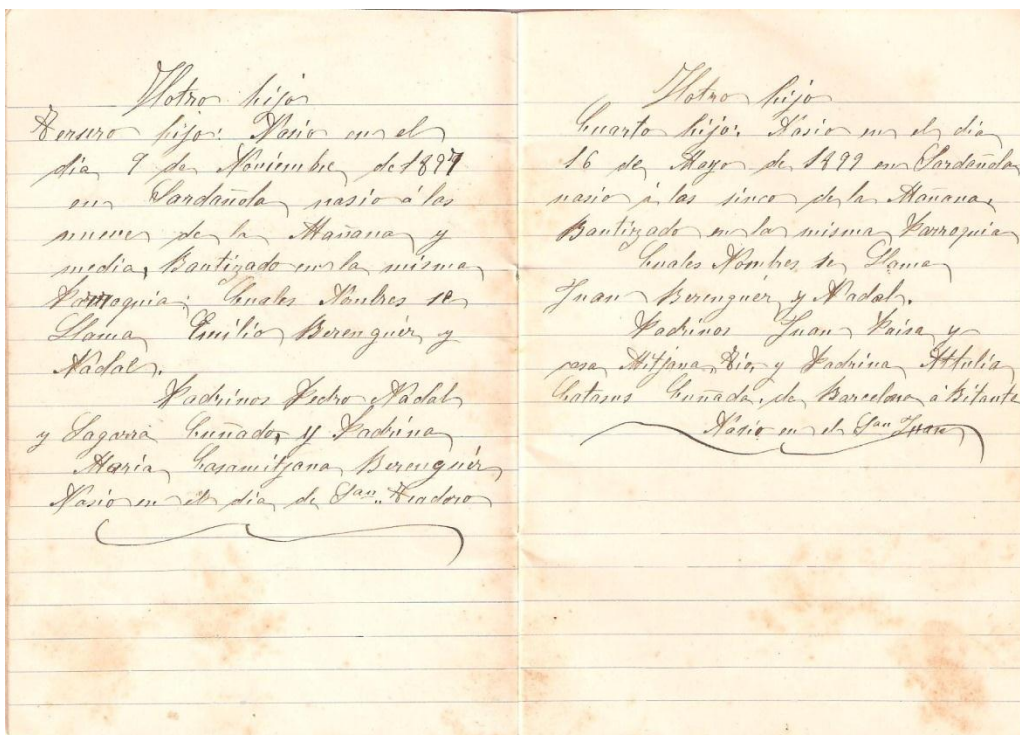 Hotro hijo
Tersero hijo: Nasio en el
dia 9 de Noviembre de 1897
en Sardañola nasio á las
nueve de la Mañana y
media, Bautizado en la misma
Parroquia; Cuales Nombres se
Llama Emilio Berenguér y
Nadal.
Padrinos Pedro Nadal
y Sagarra Cuñado, y Padrina
Maria Casamitjana Berenguér
Nasio en el dia de San Teadoro
Hotro hijo
Cuarto hijo: Nasio en el dia
16 de Mayo de 1899 en Sardañola
nasio á las sinco de la Mañana,
Bautizado en la misma Parroquia
Cuales Nombres se Llama
Juan Berenguér y Nadal.
Padrinos Juan y
Mitjana Tio, y Padrina
Catasus Cuñada, de Barcelona á
Nasio en el San Juan